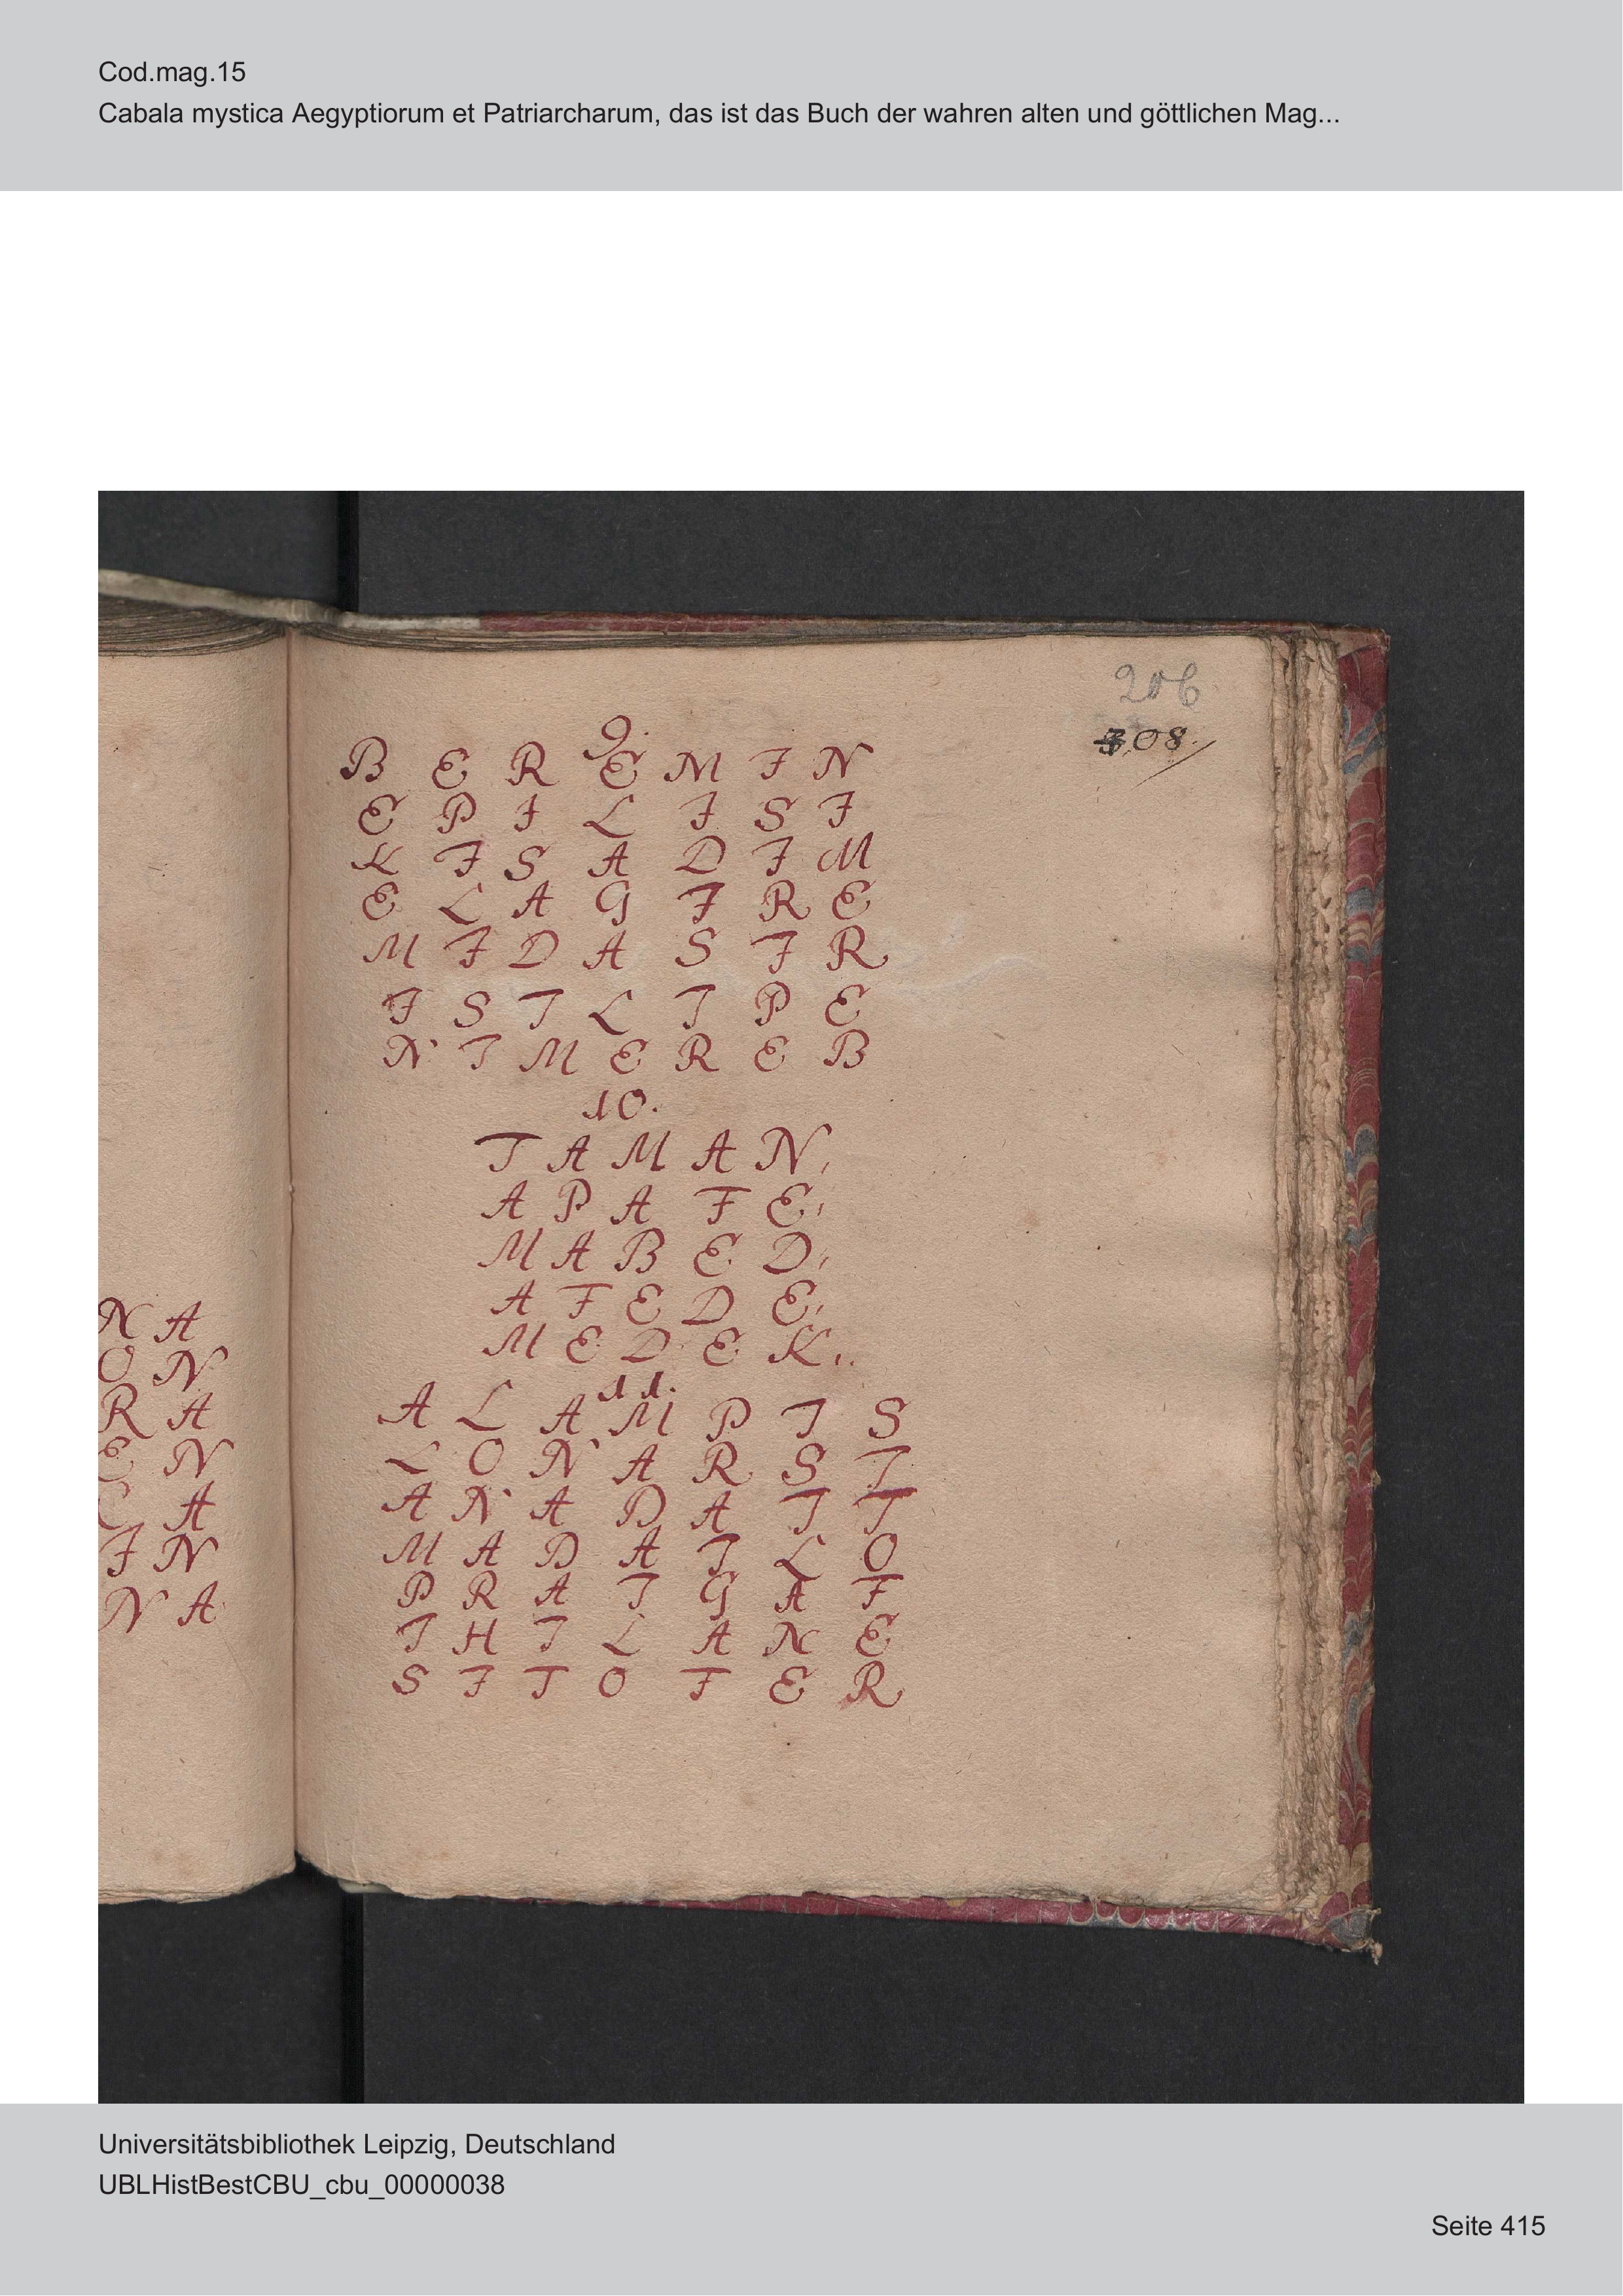 Cod.mag.15
Cabala mystica Aegyptiorum et Patriarcharum, das ist das Buch der wahren alten und göttlichen Mag...
206
308.
9.
B E R E M I N
E P I L I S I
K I S A D I M
E L A G I R E
M I D A S I R
I S T L T P E
N T M E R E B
10.
T A M A N,
A P A F E,
M A B E D,
A F E D E,
M E D E K,..
11.
A L A M P I S
L O N A R S I
A N A D A I T
M A D A I L O
P R A I G A F
I H I L A N E
S I T O F E R
N A
O N
R A
E N
A
I N
N A
Universitätsbibliothek Leipzig, Deutschland
UBLHistBestCBU_cbu_00000038
Seite 415